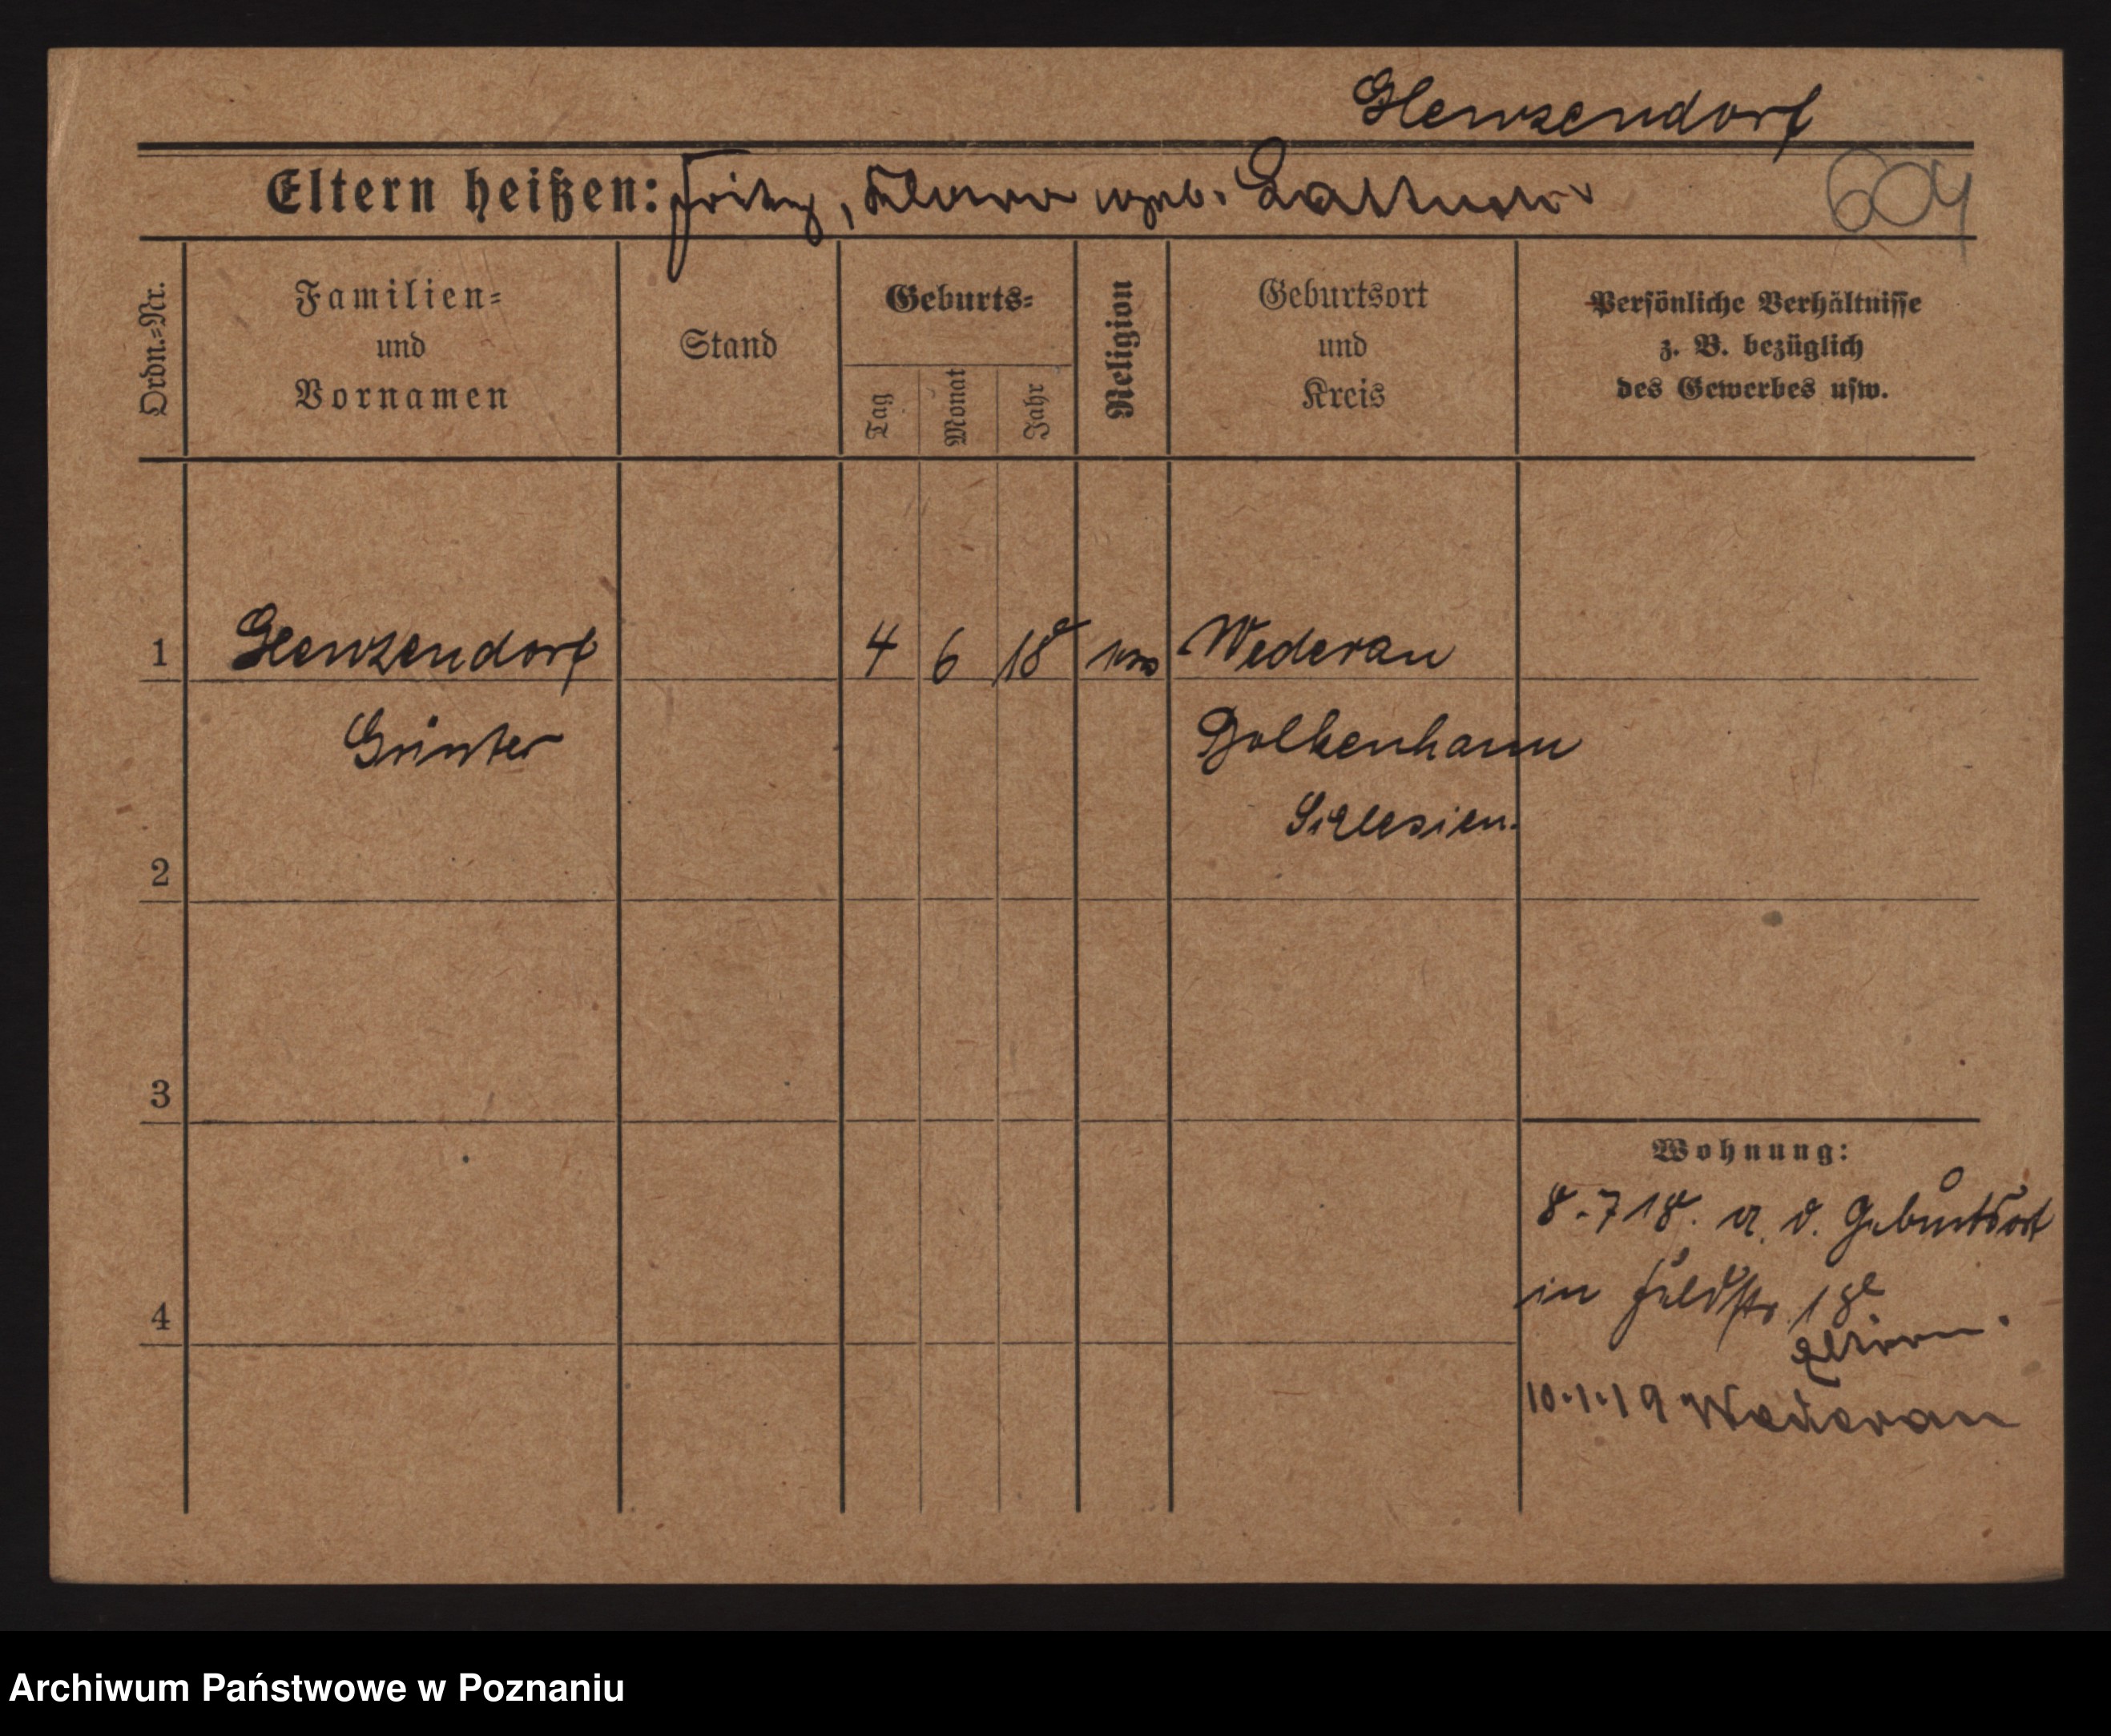 Glenzendorf
Eltern heißen: Fritz, Klara geb.
604
Ordn.=Nr.
Familien=
und
Vornamen
Stand
Geburts=
Tag
Monat
Jahr
Religion
Geburtsort
und
Kreis
Persönliche Verhältnisse
z. B. bezüglich
des Gewerbes usw.
1 Glenzendorf 4 6 18 Wederau
Günter Bolkenhain
Schlesien.
2
3
Wohnung:
8.7 18. a. d. Geburtsort
in Feldstr. 18
Eltern.
4
10.1.19 Wederau
Archiwum Państwowe w Poznaniu